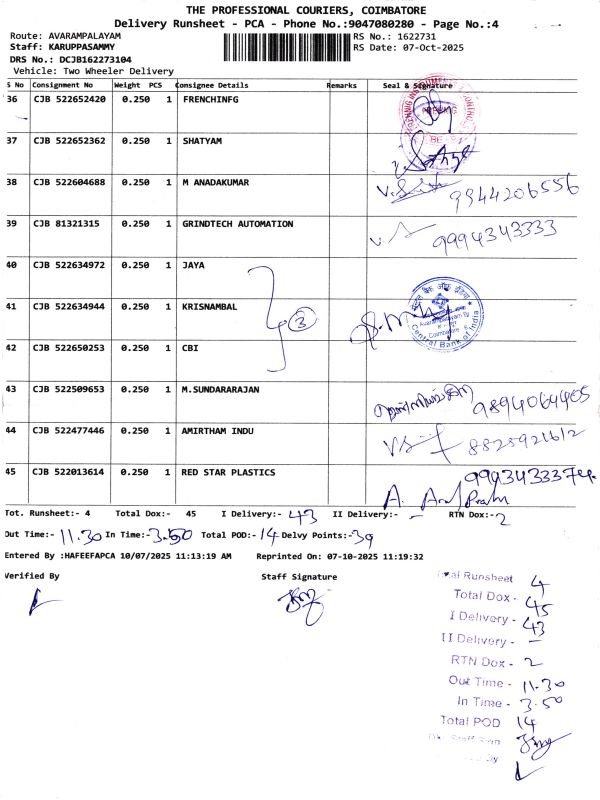 THE PROFESSIONAL COURIERS, COIMBATORE
Delivery Runsheet - PCA - Phone No.:9047080280 - Page No.:4
Route: AVARAMPALAYAM RS No.: 1622731
Staff: KARUPPASAMMY RS Date: 07-Oct-2025
DRS No.: DCJB162273104
Vehicle: Two Wheeler Delivery
S No Consignment No Weight PCS Consignee Details Remarks Seal & Signature
36 CJB 522652420 0.250 1 FRENCHINFG
37 CJB 522652362 0.250 1 SHATYAM
38 CJB 522604688 0.250 1 M ANADAKUMAR 9944206556
39 CJB 81321315 0.250 1 GRINDTECH AUTOMATION 9994343333
40 CJB 522634972 0.250 1 JAYA
41 CJB 522634944 0.250 1 KRISNAMBAL 3
Central Bank of India
42 CJB 522650253 0.250 1 CBI
43 CJB 522509653 0.250 1 M.SUNDARARAJAN 9894064405
44 CJB 522477446 0.250 1 AMIRTHAM INDU 8825921612
45 CJB 522013614 0.250 1 RED STAR PLASTICS
Tot. Runsheet:- 4 Total Dox:- 45 I Delivery:- 43 II Delivery:- - RTN Dox:- 2
Out Time:- 11.30 In Time:- 3.50 Total POD:- 14 Delvy Points:- 39
Entered By :HAFEEFAPCA 10/07/2025 11:13:19 AM Reprinted On: 07-10-2025 11:19:32
Verified By Staff Signature
Total Runsheet 4
Total Dox - 45
I Delivery - 43
II Delivery - -
RTN Dox - 2
Out Time - 11.30
In Time - 3.50
Total POD 14